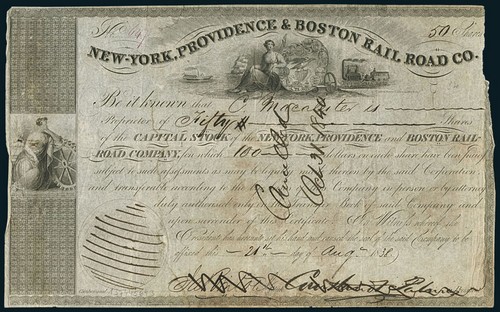 50 Shares
NEW-YORK, PROVIDENCE & BOSTON RAIL ROAD CO.
Be it known that C Macalester is
Proprietor of Fifty Shares
of the CAPITAL STOCK of the NEW-YORK, PROVIDENCE and BOSTON RAIL-
ROAD COMPANY, (on which 100 dollars on each share have been paid)
subject to such assessments as may be the said Corporation
and transferable according to the Company in person or by attorney
duly authorised only in the Book of said Company and
upon surrender of this Certificate. In Witness whereof the
President has hereunto set his hand and caused the seal of the said Company to be
affixed this 21st day of Aug 1838
Cancelled
Oct 31 1840